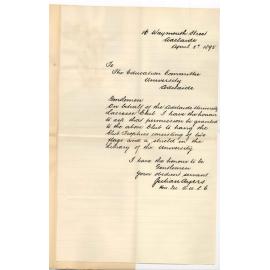 16 Waymouth Street
Adelaide
April 5th 1895
To
The Education Committee
University
Adelaide
Gentlemen
On behalf of the Adelaide University
Lacrosse Club I have the honor
to ask that permission be granted
to the above Club to hang the
Club Trophies consisting of two
flags and a shield in the
Library of the University
I have the honour to be
Gentlemen
Your obedient servant
Julian Ayers
Hon Sec A.U.L.C